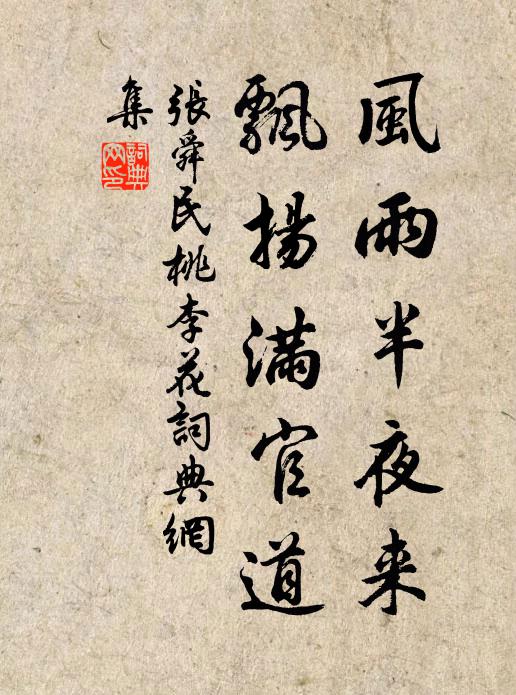 風雨半夜来
飄揚滿官道
張舜民桃李花詞典網
集
詞典
网印